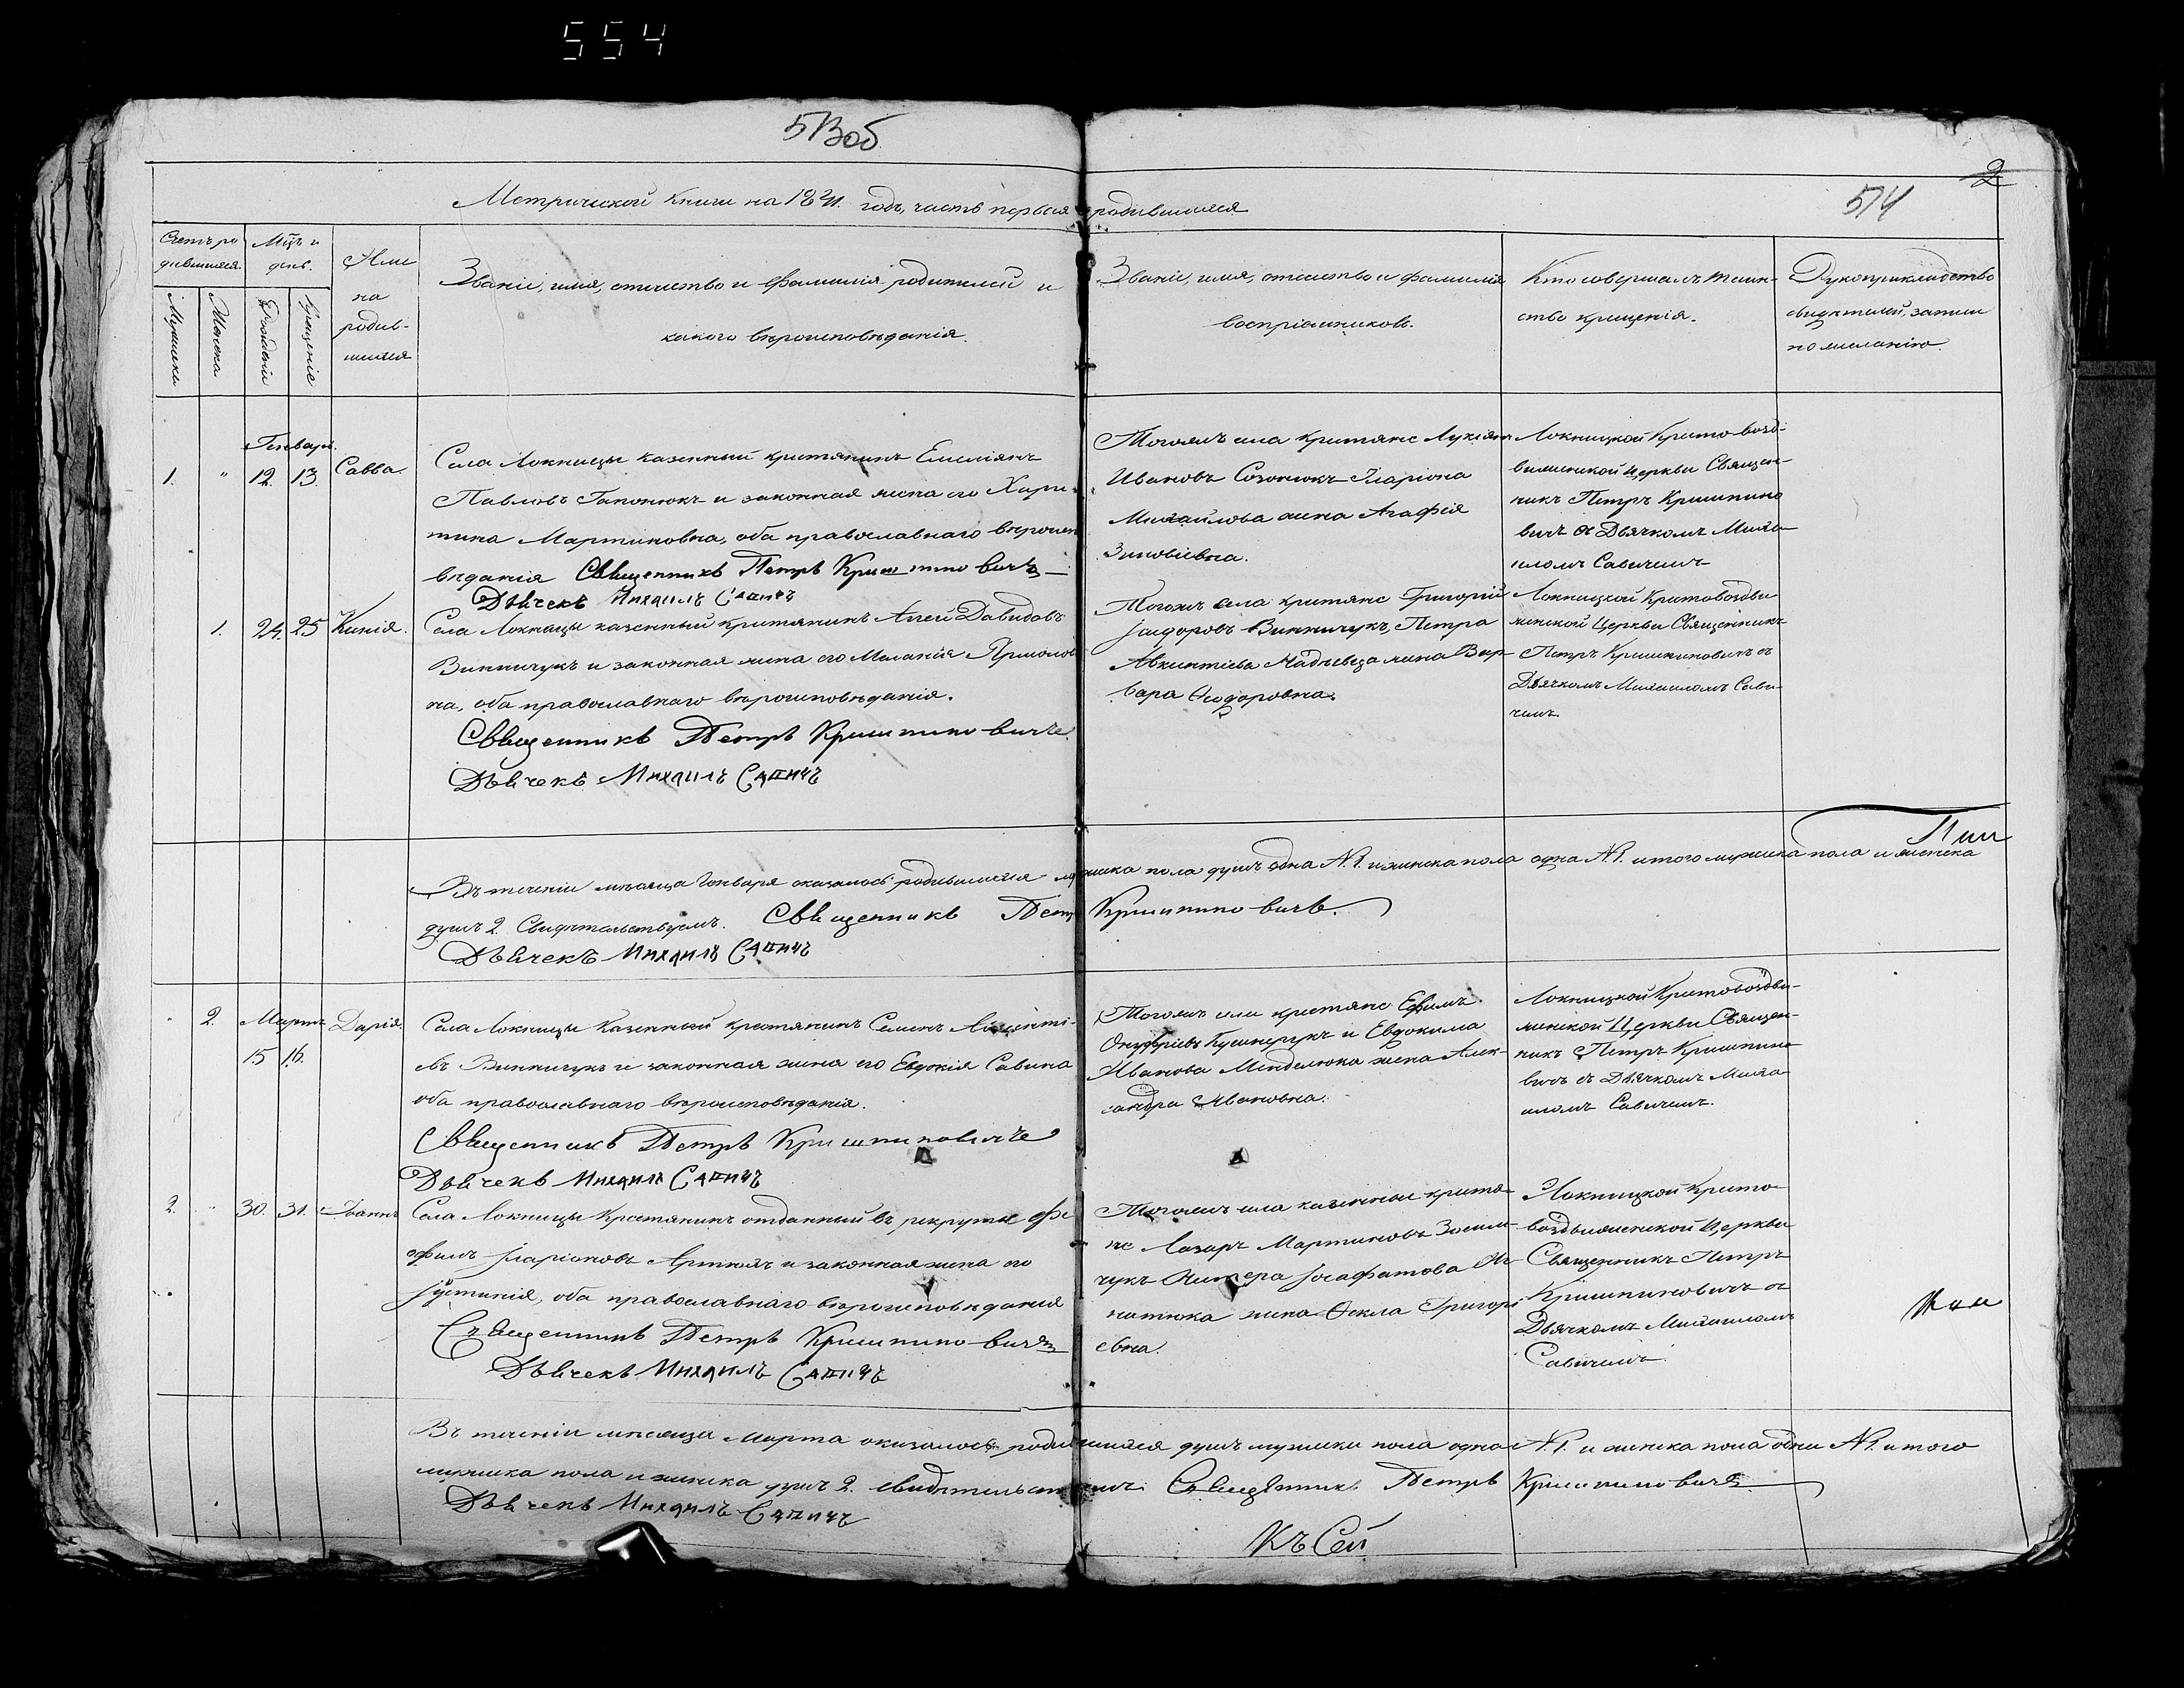 554
513об
2
514
Метрической книги на 1841. годъ, часть первая о родившихся
Счетъ ро-
дившихся.
Мужеска
Женска
Мцъ и
день.
Рожденія
Крещеніе
Име
на
родив-
шихся
Званіе, имя, отчество и фамилія родителей и
какого вѣроисповѣданія.
Званіе, имя, отчество и фамилія
воспріемниковъ.
Кто совершалъ таин-
ство крещенія.
Рукоприкладство
свидѣтелей, записи
по желанію.
Генварь.
1. " 12. 13 Савва.
Села Локницы казенный крестянинъ Емеліянъ
Павловъ Гапонюкъ и законная жена его Хари-
тина Мартиновна, оба православнаго вѣроиспо
вѣданія Священникъ Петръ Кришпиновичъ
Дьячекъ Михаилъ Савичъ
Тогожъ села крестяне Лукіянъ
Ивановъ Созонюкъ Иларіона
Михайлова жена Агафія
Зиновіевна.
Локницкой Кресто Возд-
виженской церкви Священ-
никъ Петръ Кришпино
вичъ съ Дьячкомъ Миха-
иломъ Савичемъ
1. 24. 25 Ксенія.
Села Локницы казенный крестянинъ Алексей Давидовъ
Винничукъ и законная жена его Меланія Ярмолов
на, оба православнаго вѣроисповѣданія.
Священникъ Петръ Кришпиновичъ
Дьячекъ Михаилъ Савичъ
Тогожъ села крестяне Григорій
Ісидоровъ Винничукъ, Петра
Авкинтіева жена Вар-
вара Ѳеодоровна.
Локницкой Крестовоздви
женской Церкви Священникъ
Петръ Кришпиновичъ съ
Дьячкомъ Михаиломъ Сави-
чемъ.
Въ теченіи мѣсяца Генваря оказалось родившихся мужеска пола душъ одна №1. и женска пола одна №1. итого мужеска пола и женска
душъ 2. Свидѣтельствуемъ. Священникъ Петръ Кришпиновичъ.
Дьячекъ Михаилъ Савичъ
2. Мартъ Дарія.
15 16.
Села Локницы Казенный крестянинъ Семенъ
въ Винничукъ и законная жена его Евдокія Савина
оба православнаго вѣроисповѣданія.
Священникъ Петръ Кришпиновичъ
Дьячекъ Михаилъ Савичъ
Тогожъ села крестяне Ефимъ
Онуфріевъ Кушнерукъ и Евдокима
Иванова Менделюка жена Алек-
сандра Ивановна.
Локницкой Крестовоздви-
женской Церкви Священ-
никъ Петръ Кришпино
вичъ съ Дьячкомъ Миха-
иломъ Савичемъ.
2. " 30. 31. Іоаннъ
Села Локницы Крестянинъ отданный въ рекруты
Иларіоновъ и законная жена его
Іустинія, оба православнаго вѣроисповѣданія
Священникъ Петръ Кришпиновичъ
Дьячекъ Михаилъ Савичъ
Тогожъ села казенные крестя-
не Лазарь Мартиновъ
чукъ Іосафатова
натюка жена Ѳекла Григорі
евна.
Локницкой Кресто
воздвиженской Церкви
Священникъ Петръ
Кришпиновичъ съ
Дьячкомъ Михаиломъ
Савичемъ
Въ теченіи мѣсяца Марта оказалось родившихся душъ мужеска пола одна №1. и женска пола одна №1. итого
мужеска пола и женска душъ 2. свидѣтельствуемъ Священникъ Петръ Кришпиновичъ
Дьячекъ Михаилъ Савичъ
Къ Сей